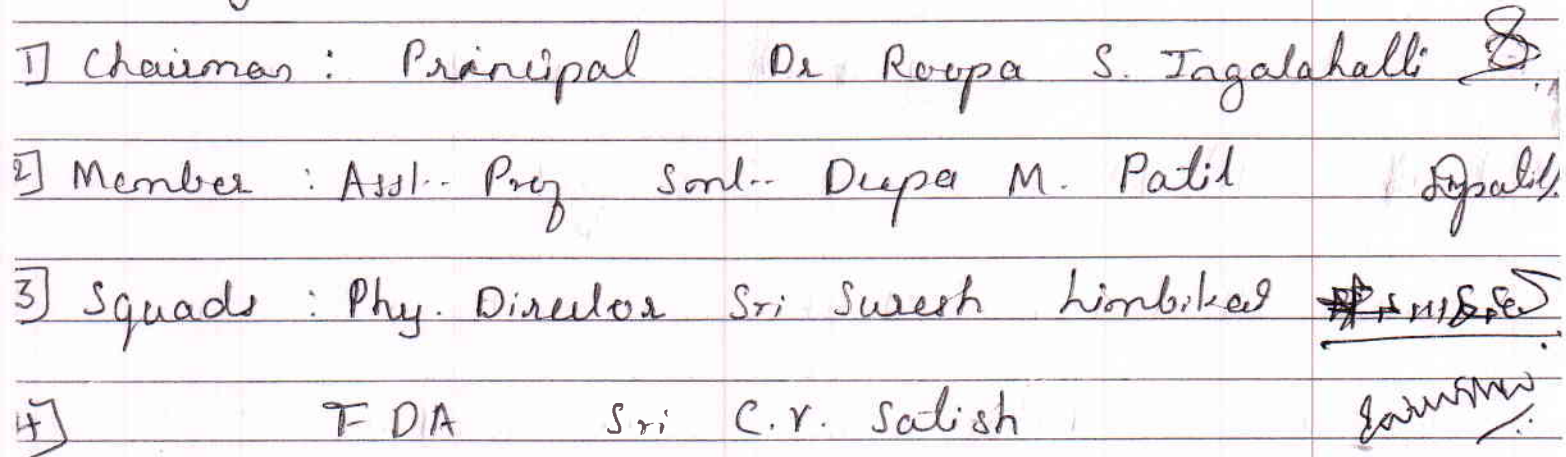 1] Chairman : Principal Dr Roopa S. Ingalahalli
2] Member : Asst.. Prof Smt.. Deepa M. Patil
3] Squads : Phy. Director Sri Suresh Limbikai
4] FDA Sri C.V. Satish